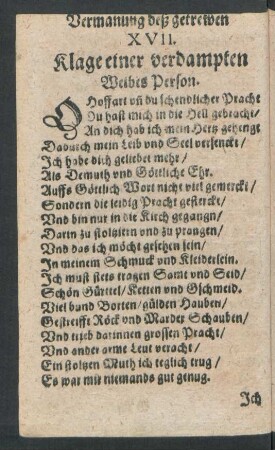 Vermanung deß getrewen
XVII.
Klage einer verdampten
Weibes Person.
O Hoffart vñ du schendlicher Pracht
Du hast mich in die Hell gebracht/
An dich hab ich mein Hertz gehengt
Dadurch mein Leib vnd Seel versenckt/
Ich habe dich geliebet mehr/
Als Demuth vnd Göttliche Ehr.
Auffs Göttlich Wort nicht viel gemerckt/
Sondern die leidig Pracht gesterckt/
Vnd bin nur in die Kirch gegangn/
Darin zu stoltziern vnd zu prangen/
Vnd das ich möcht gesehen sein/
In meinem Schmuck vnd Kleiderlein.
Ich must stets tragen Samt vnd Seid/
Schön Gürttel/ Ketten vnd Gschmeid.
Viel bund Borten/ gülden Hauben/
Gestreifft Röck vnd Marder Schauben/
Vnd trieb darinnen grossen Pracht/
Vnd ander arme Leut veracht/
Ein stoltzen Muth ich teglich trug/
Es war mir niemands gut genug.
Ich